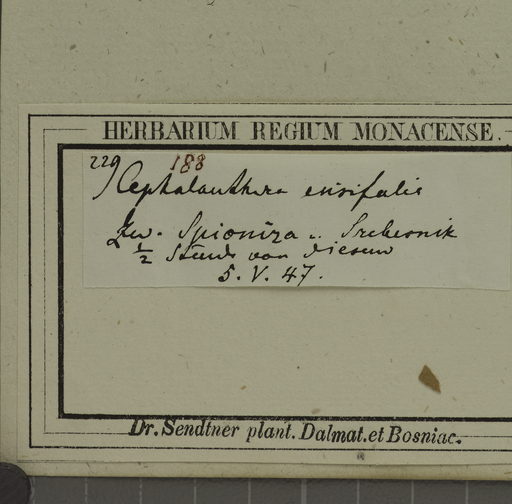 HERBARIUM REGIUM MONACENSE.
229 188
Cephalanthera ensifolia
Zw. Spioniza u. Srebernik
1/2 Stunde von diesem
5. V. 47.
Dr. Sendtner plant. Dalmat. et Bosniac.